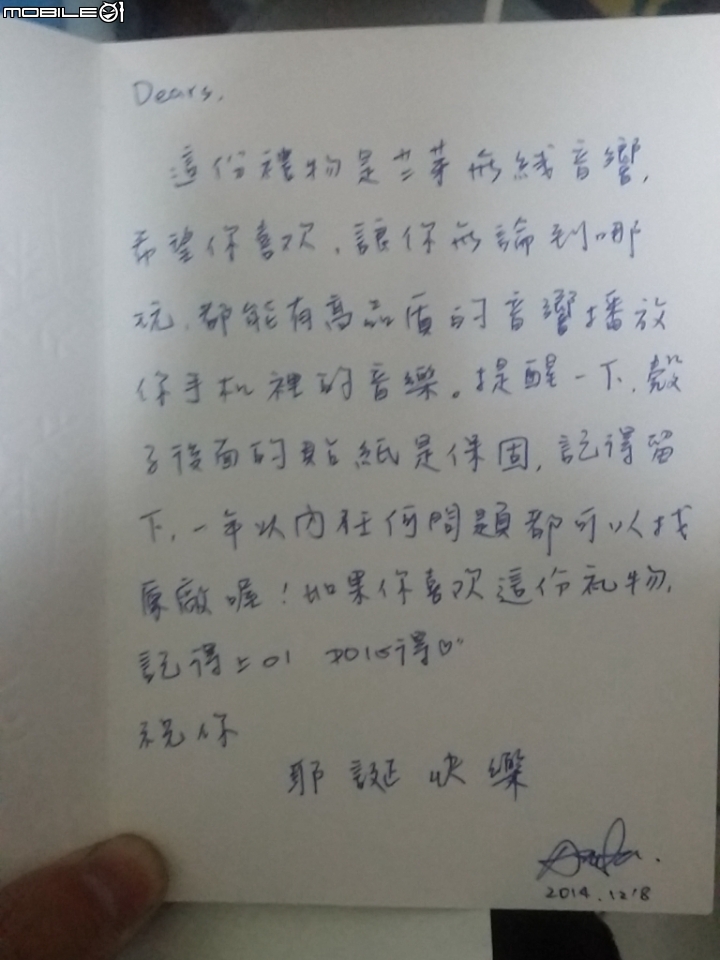 MOBILE01
Dears,
這份禮物是芒菓無线音響,
希望你喜欢,讓你無論到哪
玩,都能有高品质的音響播放
你手机裡的音樂。提醒一下,殼
子後面的貼紙是保固,記得留
下,一年以內任何問題都可以找
原廠喔!如果你喜欢這份礼物,
記得上01 po心得♡
祝你
耶誕快樂
2014.12.8